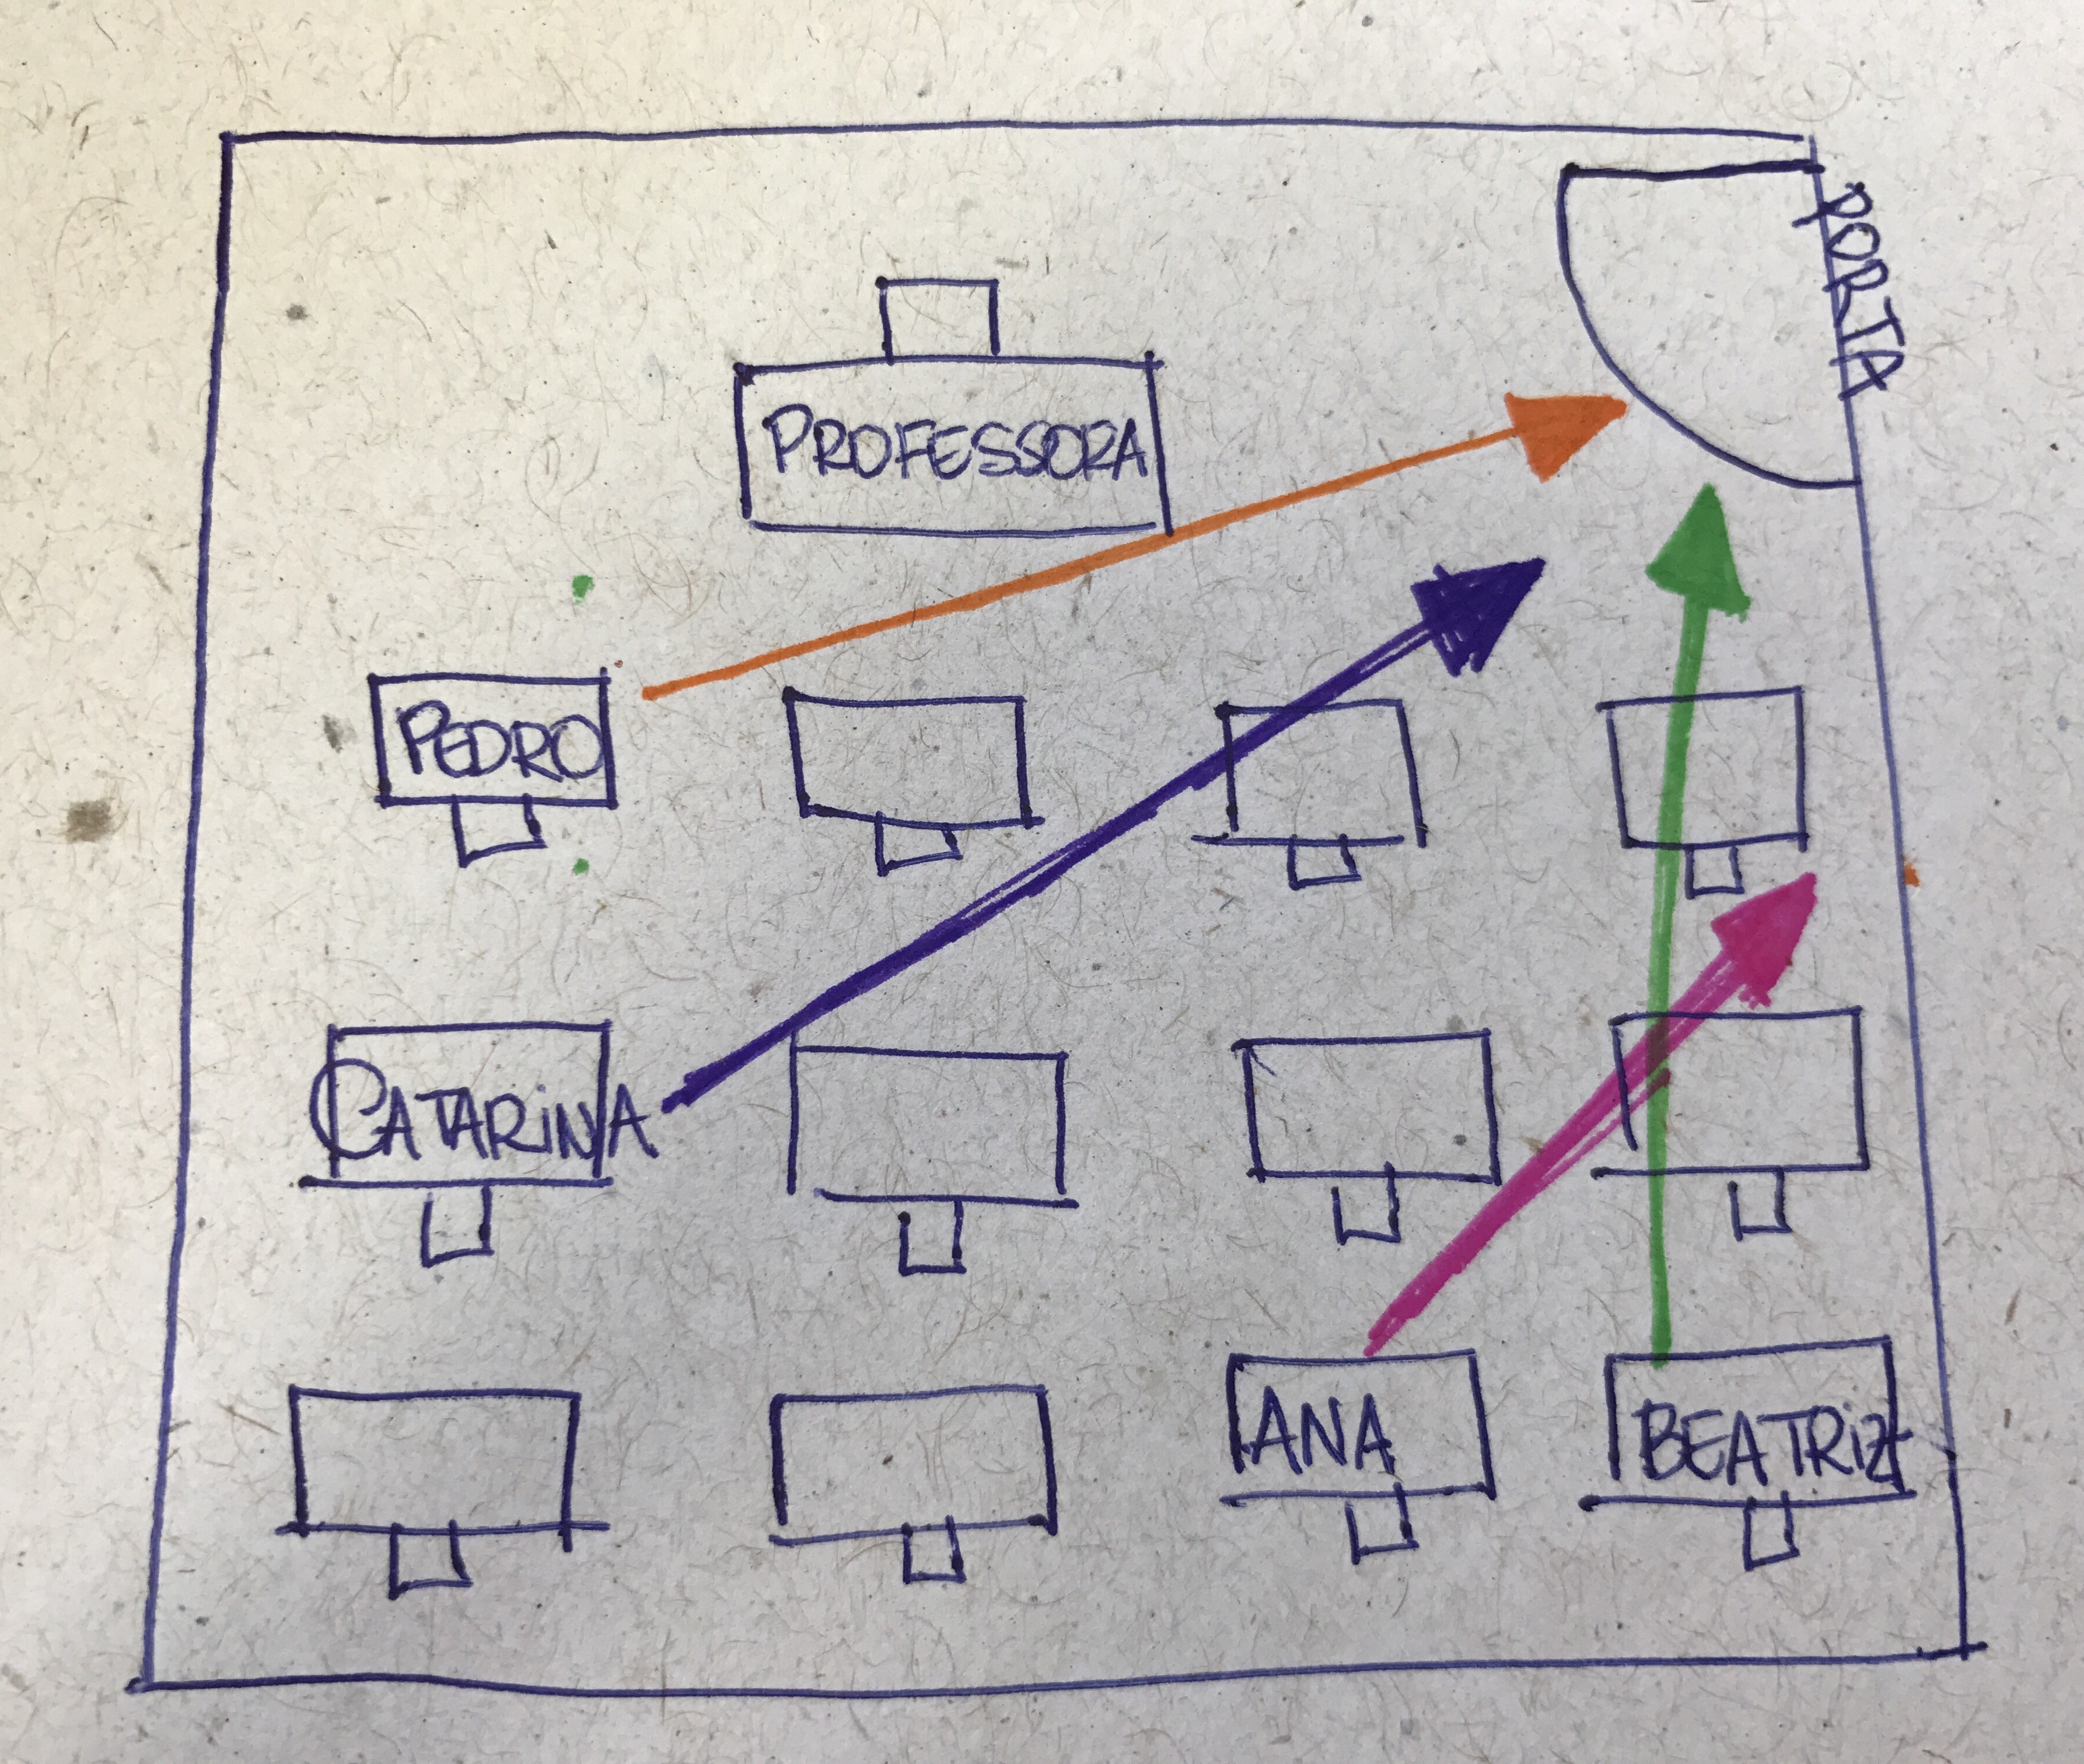 PORTA
PROFESSORA
PEDRO
CATARINA
ANA
BEATRIZ